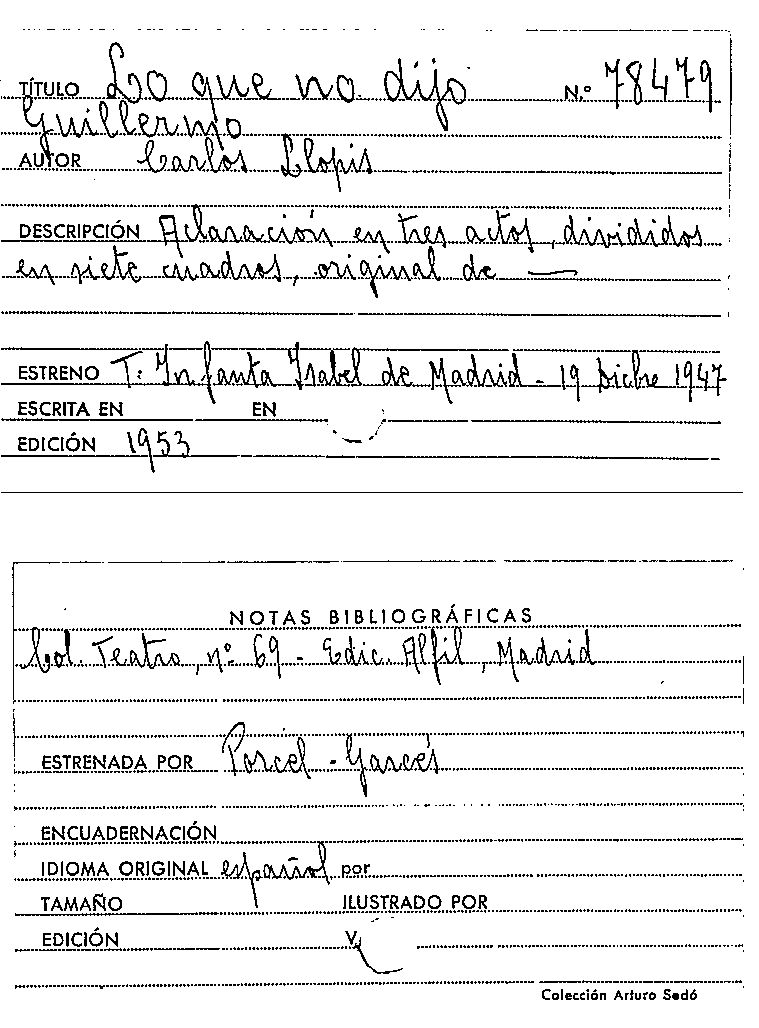 TÍTULO Lo que no dijo N.º 78479
Guillermo
AUTOR Carlos Llopis
DESCRIPCIÓN Aclaración en tres actos, divididos
en siete cuadros, original de —
ESTRENO T: Infanta Isabel de Madrid - 19 Dicbre 1947
ESCRITA EN EN
EDICIÓN 1953
NOTAS BIBLIOGRÁFICAS
Col. Teatro, nº 69 - Edic. Alfil, Madrid
ESTRENADA POR Porcel - Garcés
ENCUADERNACIÓN
IDIOMA ORIGINAL español por
TAMAÑO ILUSTRADO POR
EDICIÓN V
Colección Arturo Sedó